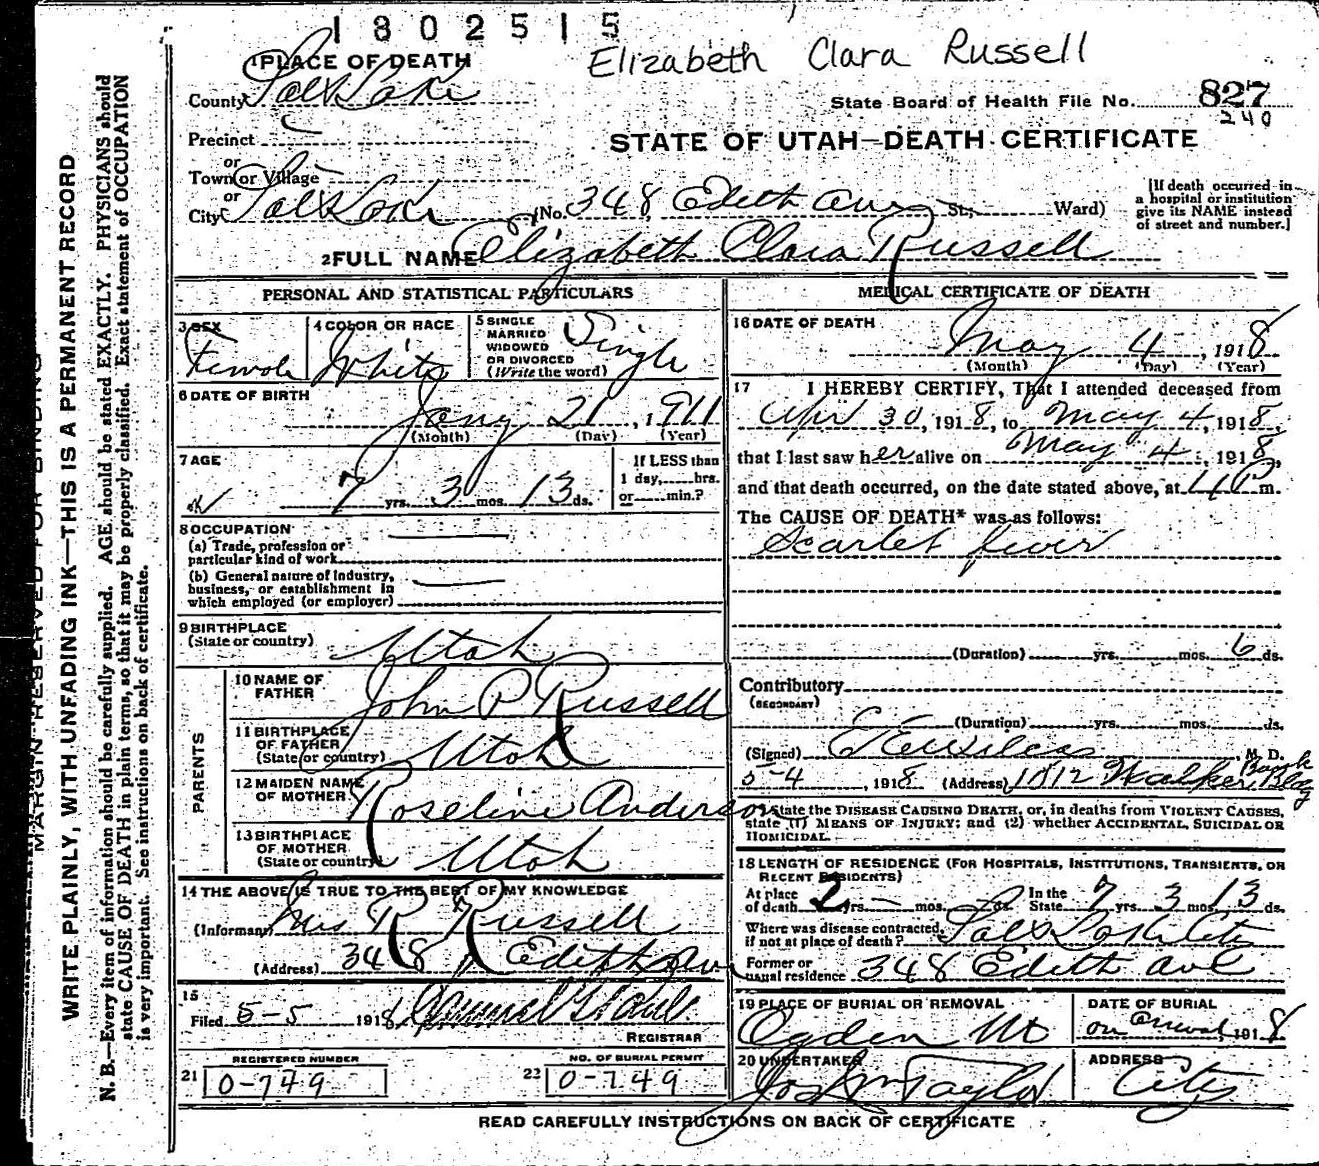 1802515
Elizabeth Clara Russell
1 PLACE OF DEATH
County Salt Lake
State Board of Health File No. 827
240
Precinct
STATE OF UTAH—DEATH CERTIFICATE
or
Town or Village
or
City Salt Lake (No. 348 Edith Ave St; Ward)
[If death occurred in
a hospital or institution
give its NAME instead
of street and number.]
2 FULL NAME Elizabeth Clara Russell
PERSONAL AND STATISTICAL PARTICULARS
3 SEX
Female
4 COLOR OR RACE
White
5 SINGLE
MARRIED
WIDOWED
OR DIVORCED
(Write the word)
Single
6 DATE OF BIRTH
Jany 21, 1911
(Month) (Day) (Year)
7 AGE
7 yrs. 3 mos. 13 ds.
If LESS than
1 day, hrs.
or min.?
8 OCCUPATION
(a) Trade, profession or
particular kind of work
(b) General nature of industry,
business, or establishment in
which employed (or employer)
9 BIRTHPLACE
(State or country) Utah
PARENTS
10 NAME OF
FATHER John P Russell
11 BIRTHPLACE
OF FATHER
(State or country) Utah
12 MAIDEN NAME
OF MOTHER Roseline Anderson
13 BIRTHPLACE
OF MOTHER
(State or country) Utah
14 THE ABOVE IS TRUE TO THE BEST OF MY KNOWLEDGE
(Informant) Mrs R Russell
(Address) 348 Edith Av
15
Filed 5-5 1918
REGISTRAR
REGISTERED NUMBER
21 0-779
NO. OF BURIAL PERMIT
22 0-749
MEDICAL CERTIFICATE OF DEATH
16 DATE OF DEATH
May 4, 1918
(Month) (Day) (Year)
17 I HEREBY CERTIFY, That I attended deceased from
Apr 30, 1918, to May 4, 1918,
that I last saw her alive on May 4, 1918,
and that death occurred, on the date stated above, at m.
The CAUSE OF DEATH* was as follows:
Scarlet fever
(Duration) yrs. mos. 6 ds.
Contributory
(SECONDARY)
(Duration) yrs. mos. ds.
(Signed) M. D.
5-4, 1918 (Address) 1012 Walker Bank Bldg
State the DISEASE CAUSING DEATH, or, in deaths from VIOLENT CAUSES,
state (1) MEANS OF INJURY; and (2) whether ACCIDENTAL, SUICIDAL OR
HOMICIDAL.
18 LENGTH OF RESIDENCE (FOR HOSPITALS, INSTITUTIONS, TRANSIENTS, OR
RECENT RESIDENTS)
At place
of death 2 yrs. — mos. ds. In the
State 7 yrs. 3 mos. 13 ds.
Where was disease contracted,
if not at place of death? Salt Lake City
Former or
usual residence 348 Edith Ave
19 PLACE OF BURIAL OR REMOVAL
Ogden Ut
DATE OF BURIAL
on Arrival, 1918
20 UNDERTAKER
Jos Wm Taylor
ADDRESS
City
READ CAREFULLY INSTRUCTIONS ON BACK OF CERTIFICATE
MARGIN RESERVED FOR BINDING
WRITE PLAINLY, WITH UNFADING INK—THIS IS A PERMANENT RECORD
N. B.—Every item of information should be carefully supplied. AGE should be stated EXACTLY. PHYSICIANS should
state CAUSE OF DEATH in plain terms, so that it may be properly classified. Exact statement of OCCUPATION
is very important. See instructions on back of certificate.